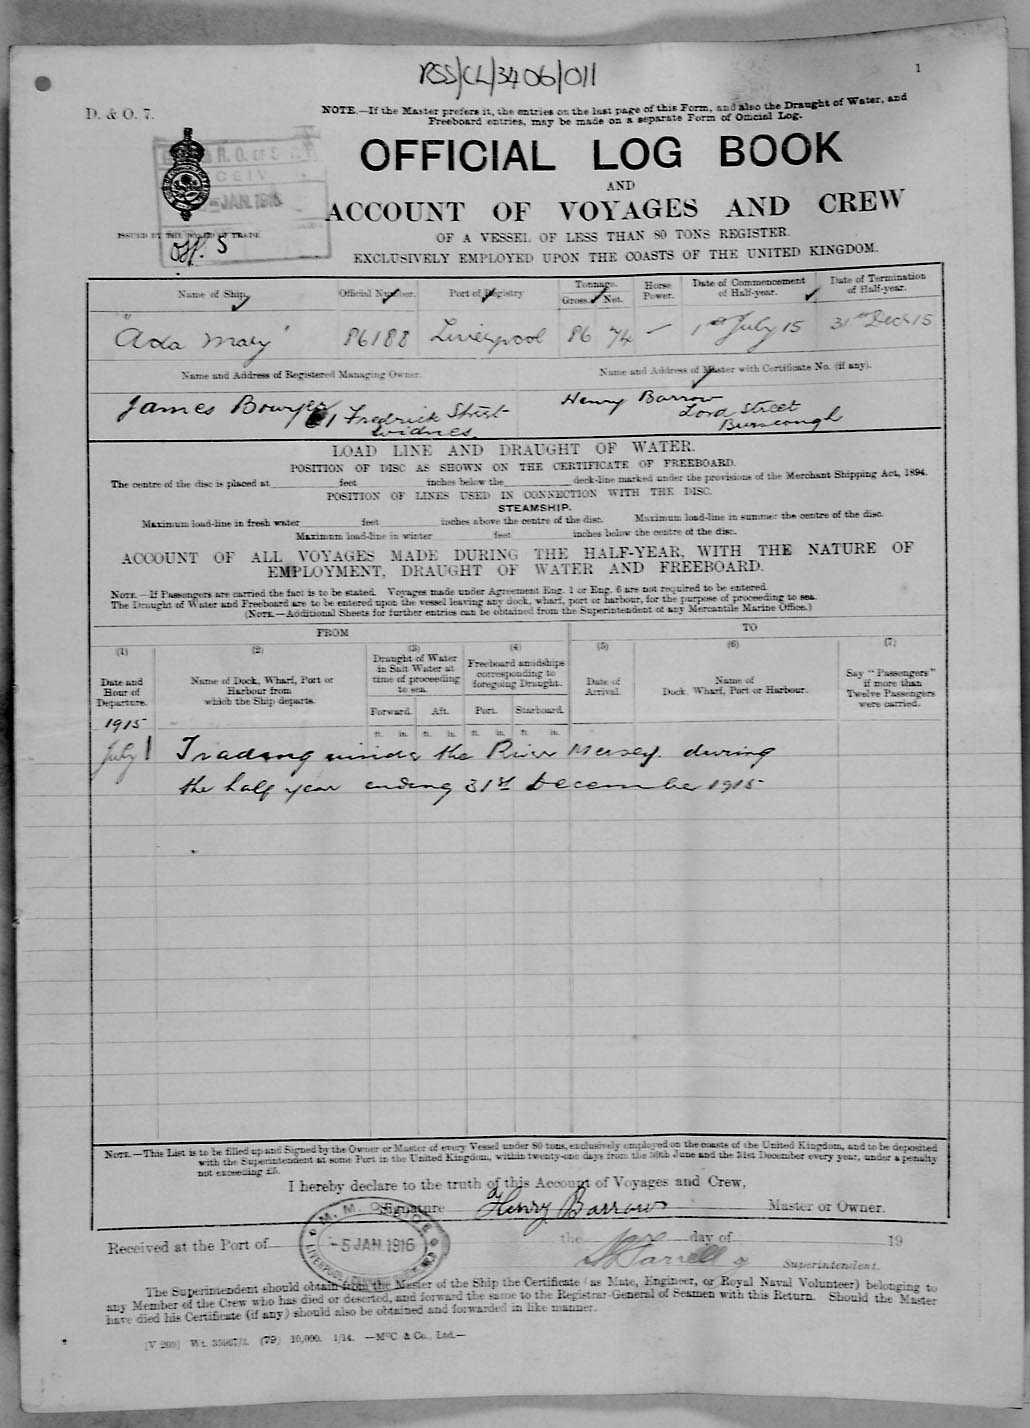 RSS/CL/3406/011
1
D. & O. 7.
NOTE.—If the Master prefers it, the entries on the last page of this Form, and also the Draught of Water, and
Freeboard entries, may be made on a separate Form of Official Log.
OFFICIAL LOG BOOK
AND
ACCOUNT OF VOYAGES AND CREW
OF A VESSEL OF LESS THAN 80 TONS REGISTER
EXCLUSIVELY EMPLOYED UPON THE COASTS OF THE UNITED KINGDOM.
R.O. OF S
JAN. 1916
ISSUED BY THE BOARD OF TRADE
Off. 5
Name of Ship. Official Number. Port of Registry Tonnage. Gross. Net. Horse Power. Date of Commencement of Half-year. Date of Termination of Half-year.
"Ada Mary" 86188 Liverpool 86 74 — 1st July 15 31st Dec 15
Name and Address of Registered Managing Owner. Name and Address of Master with Certificate No. (if any).
James Bowyer 1 Fredrick Street Widnes.
Henry Barrow Lord Street Burscough
LOAD LINE AND DRAUGHT OF WATER.
POSITION OF DISC AS SHOWN ON THE CERTIFICATE OF FREEBOARD.
The centre of the disc is placed at feet inches below the deck-line marked under the provisions of the Merchant Shipping Act, 1894.
POSITION OF LINES USED IN CONNECTION WITH THE DISC.
STEAMSHIP.
Maximum load-line in fresh water feet inches above the centre of the disc. Maximum load-line in summer the centre of the disc.
Maximum load-line in winter feet inches below the centre of the disc.
ACCOUNT OF ALL VOYAGES MADE DURING THE HALF-YEAR, WITH THE NATURE OF
EMPLOYMENT, DRAUGHT OF WATER AND FREEBOARD.
NOTE.—If Passengers are carried the fact is to be stated. Voyages made under Agreement Eng. 1 or Eng. 6 are not required to be entered.
The Draught of Water and Freeboard are to be entered upon the vessel leaving any dock, wharf, port or harbour, for the purpose of proceeding to sea.
(NOTE.—Additional Sheets for further entries can be obtained from the Superintendent of any Mercantile Marine Office.)
FROM TO
(1) (2) (3) (4) (5) (6) (7)
Date and Hour of Departure.
Name of Dock, Wharf, Port or Harbour from which the Ship departs.
Draught of Water in Salt Water at time of proceeding to sea.
Freeboard amidships corresponding to foregoing Draught.
Date of Arrival.
Name of Dock, Wharf, Port or Harbour.
Say "Passengers" if more than Twelve Passengers were carried.
Forward. Aft. Port. Starboard.
ft. in. ft. in. ft. in. ft. in.
1915
July 1 Trading inside the River Mersey. during
the half year ending 31st December 1915
NOTE.—This List is to be filled up and Signed by the Owner or Master of every Vessel under 80 tons, exclusively employed on the coasts of the United Kingdom, and to be deposited
with the Superintendent at some Port in the United Kingdom, within twenty-one days from the 30th June and the 31st December every year, under a penalty
not exceeding £5.
I hereby declare to the truth of this Account of Voyages and Crew,
Signature Henry Barrow Master or Owner.
Received at the Port of the day of 19
M. M. O
-5 JAN. 1916
LIVERPOOL
Farrell
Superintendent.
The Superintendent should obtain from the Master of the Ship the Certificate (as Mate, Engineer, or Royal Naval Volunteer) belonging to
any Member of the Crew who has died or deserted, and forward the same to the Registrar-General of Seamen with this Return. Should the Master
have died his Certificate (if any) should also be obtained and forwarded in like manner.
(79) 10,000. 1/14. —McC. & Co., Ltd.—